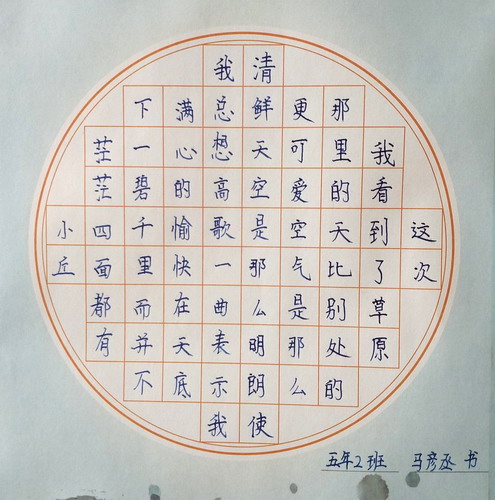 这次
我看到了草原
那里的天比别处的
更可爱空气是那么
清鲜天空是那么明朗使
我总想高歌一曲表示我
满心的愉快在天底
下一碧千里而并不
茫茫四面都有
小丘
五年2班 马彦丞 书